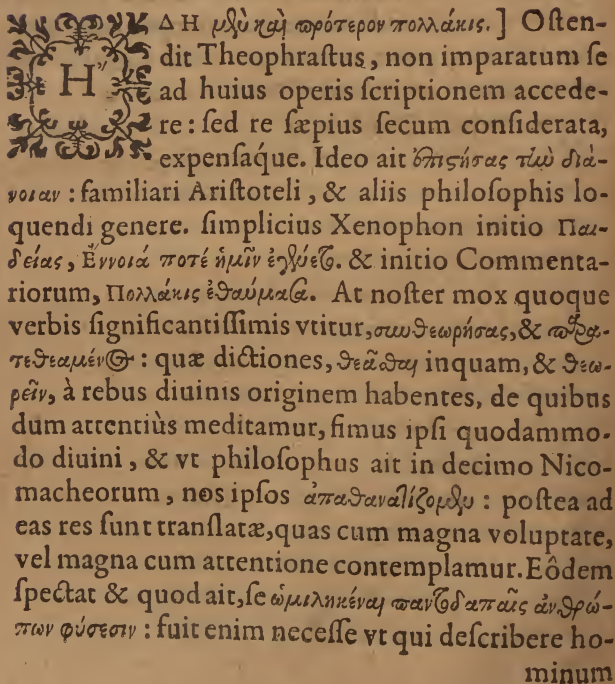 ἬΔΗ μὲν καὶ πρότερον πολλάκις.] Oſten-
dit Theophraſtus, non imparatum ſe
ad huius operis ſcriptionem accede-
re: ſed re ſæpius ſecum conſiderata,
expenſáque. Ideo ait ἐπιστήσας τὴν διά-
νοιαν: familiari Ariſtoteli, & aliis philoſophis lo-
quendi genere. ſimplicius Xenophon initio Παι-
δείας, Ἔννοιά ποτέ ἡμῖν ἐγένετο. & initio Commenta-
riorum, Πολλάκις ἐθαύμασα. At noſter mox quoque
verbis ſignificantiſſimis vtitur, συνθεωρήσας, & παρα-
τεθεαμένος: quæ dictiones, θεᾶσθαι inquam, & θεω-
ρεῖν, à rebus diuinis originem habentes, de quibus
dum attentiùs meditamur, ſimus ipſi quodammo-
do diuini, & vt philoſophus ait in decimo Nico-
macheorum, nos ipſos ἀπαθανατίζομεν: poſtea ad
eas res ſunt tranſlatæ, quas cum magna voluptate,
vel magna cum attentione contemplamur. Eôdem
ſpectat & quod ait, ſe ὡμιληκέναι παντοδαπαῖς ἀνθρώ-
πων φύσεσιν: fuit enim neceſſe vt qui deſcribere ho-
minum